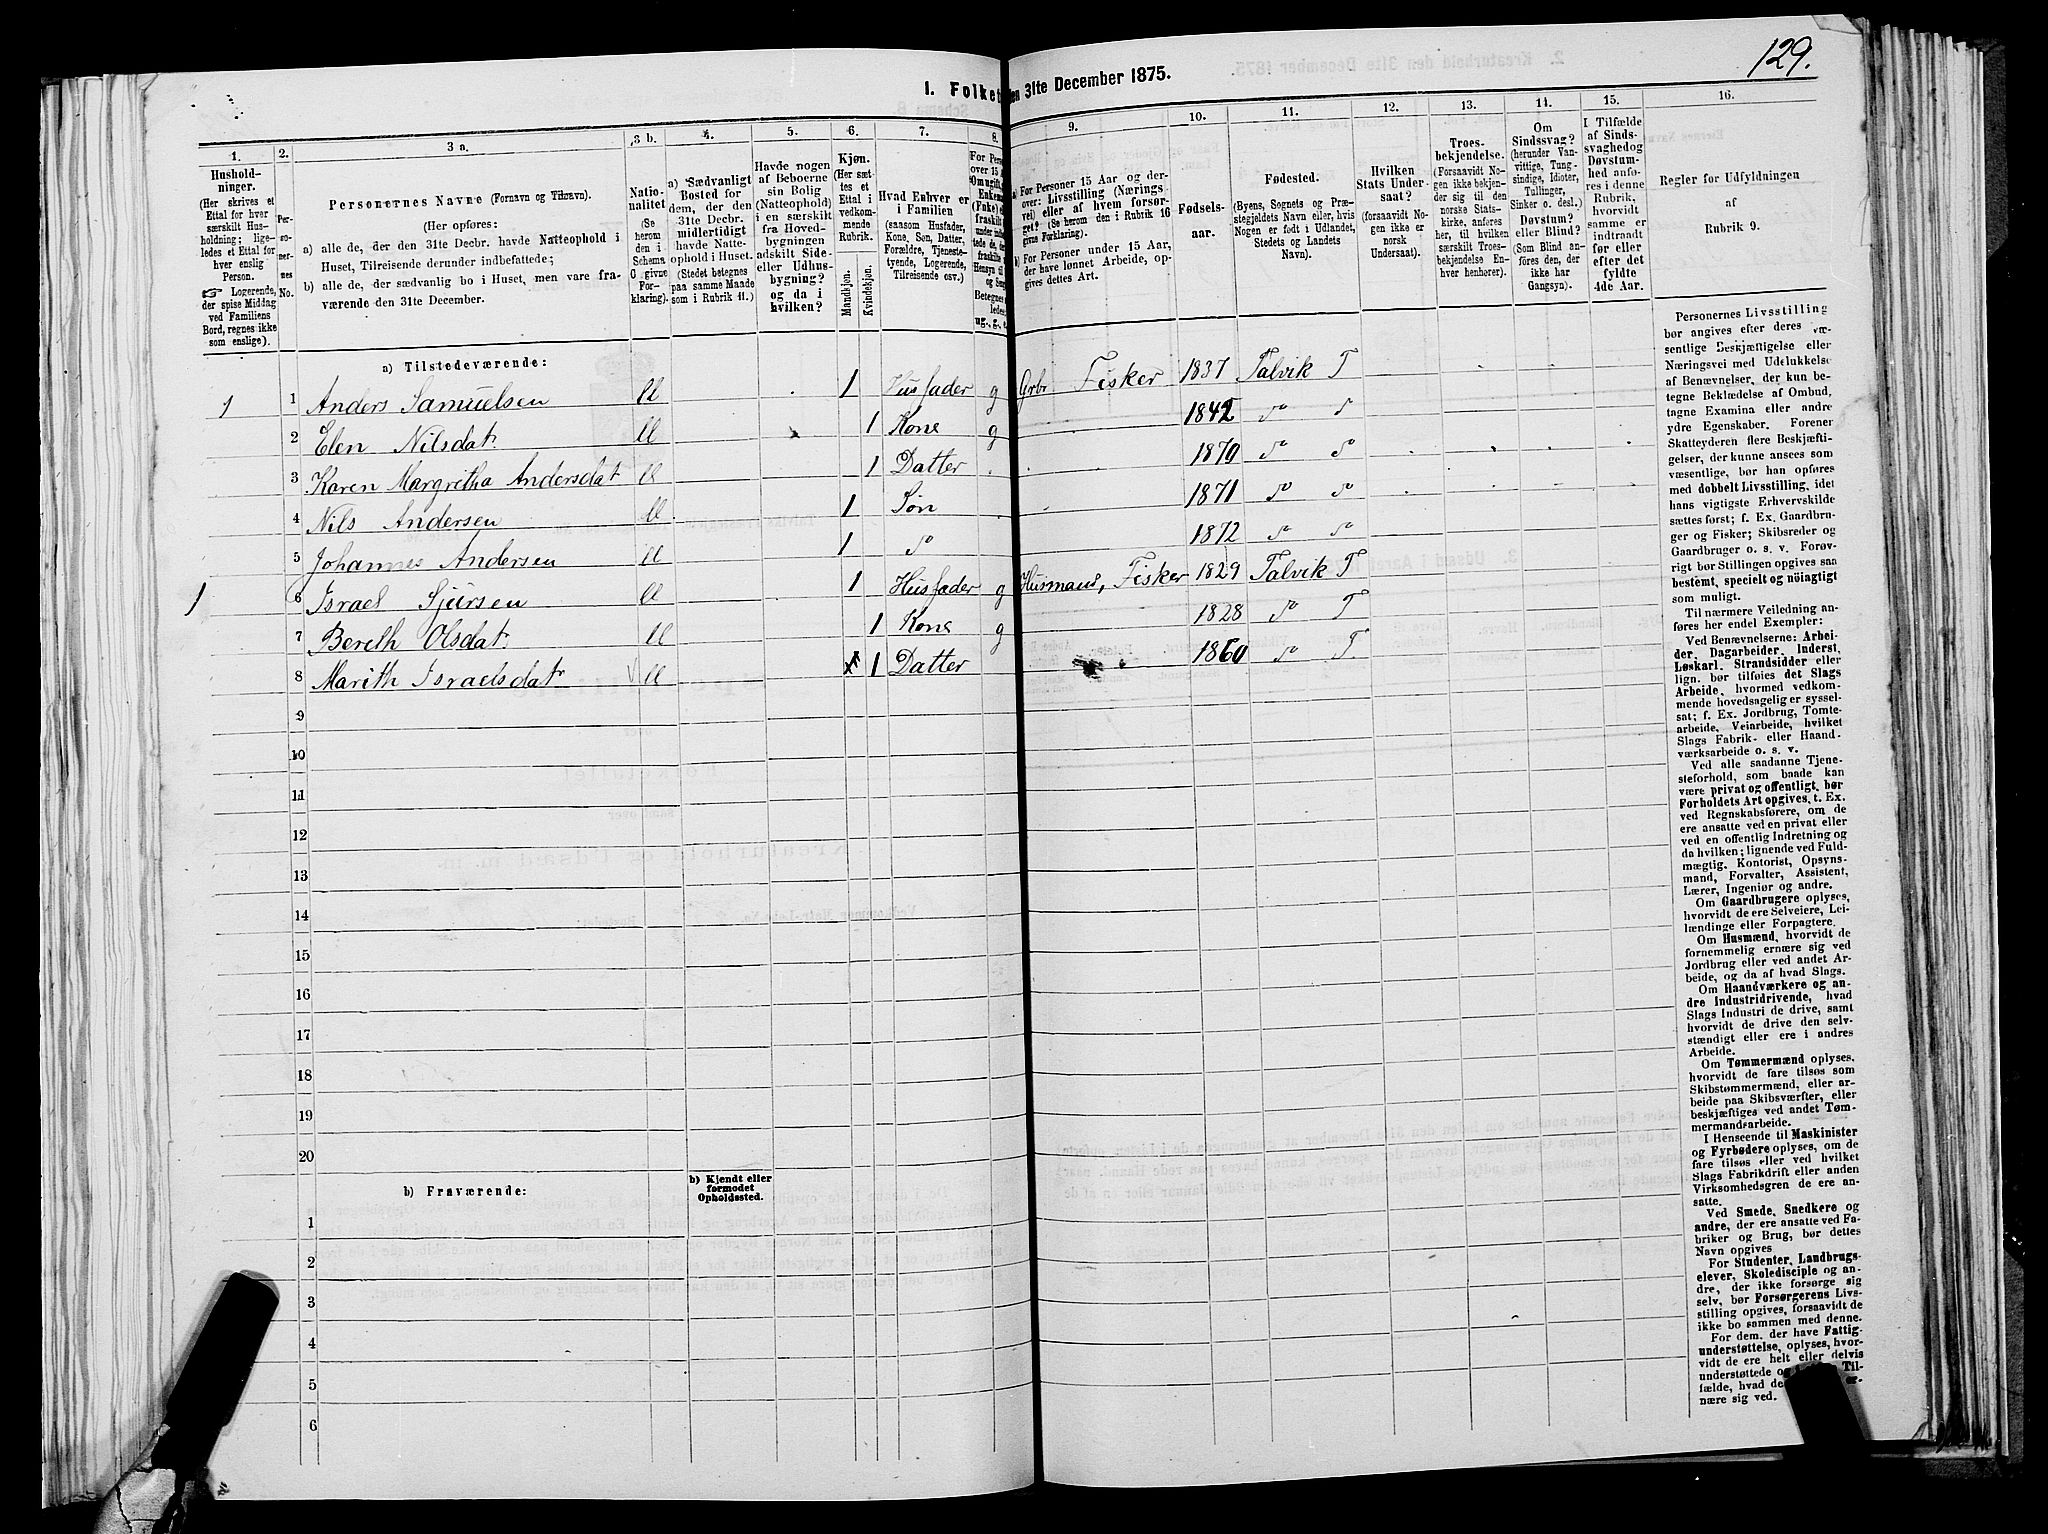 129.
1. Folket
en 31te December 1875.
1. 2. 3 a. 3 b. 4. 5. 6. 7. 8. 9. 10. 11. 12. 13. 14. 15. 16.
Hushold-
ninger.
(Her skrives et
Ettal for hver
særskilt Hus-
holdning; lige-
ledes et Ettal for
hver enslig
Person.
☞ Logerende,
der spise Middag
ved Familiens
Bord, regnes ikke
som enslige).
Per-
so-
ner-
nes
No.
Personernes Navne (Fornavn og Tilnavn).
(Her opføres:
a) alle de, der den 31te Decbr. havde Natteophold i
Huset, Tilreisende derunder indbefattede;
b) alle de, der sædvanlig bo i Huset, men vare fra-
værende den 31te December.
Natio-
nalitet
(Se
herom
den i
Schema
C givne
For-
klaring).
a) Sædvanligt
Bosted for
dem, der den
31te Decbr.
midlertidigt
havde Natte-
ophold i Huset.
(Stedet betegnes
paa samme Maade
som i Rubrik 11.)
Havde nogen
af Beboerne
sin Bolig
(Natteophold)
i en særskilt
fra Hoved-
bygningen
adskilt Side-
eller Udhus-
bygning?
og da i
hvilken?
Kjøn.
(Her sæt-
tes et
Ettal i
vedkom-
mende
Rubrik.
Mandkjøn.
Kvindekjøn.
Hvad Enhver er
i Familien
(saasom Husfader,
Kone, Søn, Datter,
Forældre, Tjeneste-
tyende, Logerende,
Tilreisende osv.)
a) For Personer 15 Aar og der-
over: Livsstilling (Nærings
vei) eller af hvem forsør-
get? (Se herom den i Rubrik 16
givne Forklaring).
b) For Personer under 15 Aar,
der have lønnet Arbeide, op-
gives dettes Art.
Fødsels-
aar.
Fødested.
(Byens, Sognets og Præ-
stegjeldets Navn eller, hvis
Nogen er født i Udlandet,
Stedets og Landets
Navn).
Hvilken
Stats Under-
saat?
(forsaavidt No-
gen ikke er
norsk
Undersaat).
Troes-
bekjendelse.
(Forsaavidt No-
gen ikke bekjen-
der sig til den
norske Stats-
kirke, anføres
her, til hvilken
særskilt Troes-
bekjendelse En-
hver henhører).
Om
Sindssvag?
(herunder Van-
vittige, Tung-
sindige, Idioter,
Tullinger,
Sinker o. desl.)
Døvstum?
eller Blind?
(Som Blind an-
føres den, der
ikke har
Gangsyn).
I Tilfælde
af Sinds-
svaghedog
Døvstum-
hed anfø-
res i denne
Rubrik,
hvorvidt
samme er
indtraadt
før eller
efter det
fyldte
4de Aar.
Regler for Udfyldningen
af
Rubrik 9.
a) Tilstedeværende:
1 1 Anders Samuelsen ll 1 Husfader g Grbr Fisker 1837 Talvik T
2 Elen Nilsdat ll 1 Kone g 1842 do do
3 Karen Margretha Andersdat ll 1 Datter 1870 do do
4 Nils Andersen ll 1 Søn 1871 do do
5 Johannes Andersen ll 1 do 1872 do do
1 6 Israel Sjursen ll 1 Husfader g Husmand, Fisker 1829 Talvik T
7 Bereth Olsdat ll 1 Kone g 1828 do T
8 Marith Israelsdat ll 1 Datter 1860 do T.
9
10
11
12
13
14
15
16
17
18
19
20
b) Fraværende:
b) Kjendt eller
formodet
Opholdssted.
1
2
3
4
5
6
Personernes Livsstilling
bør angives efter deres væ-
sentlige Beskjæftigelse eller
Næringsvei med Udelukkelse
af Benævnelser, der kun be-
tegne Beklædelse af Ombud,
tagne Examina eller andre
ydre Egenskaber. Forener
Skatteyderen flere Beskjæfti-
gelser, der kunne ansees som
væsentlige, bør han opføres
med dobbelt Livsstilling, idet
hans vigtigste Erhvervskilde
sættes først; f. Ex. Gaardbru-
ger og Fisker; Skibsreder og
Gaardbruger o. s. v. Forøv-
rigt bør Stillingen opgives saa
bestemt, specielt og nøiagtigt
som muligt.
Til nærmere Veiledning an-
føres her endel Exempler:
Ved Benævnelserne: Arbei-
der, Dagarbeider, Inderst,
Løskarl, Strandsidder eller
lign. bør tilføies det Slags
Arbeide, hvormed vedkom-
mende hovedsagelig er syssel-
sat; f. Ex. Jordbrug, Tomte-
arbeide, Veiarbeide, hvilket
Slags Fabrik- eller Haand-
værksarbeide o. s. v.
Ved alle saadanne Tjene-
steforhold, som baade kan
være privat og offentligt, bør
Forholdets Art opgives, t. Ex.
ved Regnskabsførere, om de
ere ansatte ved en privat eller
ved en offentlig Indretning og
da hvilken; lignende ved Fuld-
mægtig, Kontorist, Opsyns-
mand, Forvalter, Assistent,
Lærer, Ingeniør og andre.
Om Gaardbrugere oplyses,
hvorvidt de ere Selveiere, Lei-
lændinge eller Forpagtere.
Om Husmænd, hvorvidt de
fornemmelig ernære sig ved
Jordbrug eller ved andet Ar-
beide, og da af hvad Slags.
Om Haandværkere og an-
dre Industridrivende, hvad
Slags Industri de drive, samt
hvorvidt de drive den selv-
stændigt eller ere i andres
Arbeide.
Om Tømmermænd oplyses,
hvorvidt de fare tilsøs som
Skibstømmermænd, eller ar-
beide paa Skibsværfter, eller
beskjæftiges ved andet Tøm-
mermandsarbeide.
I Henseende til Maskinister
og Fyrbødere oplyses, om de
fare tilsøs eller ved hvilket
Slags Fabrikdrift eller anden
Virksomhedsgren de ere an-
satte.
Ved Smede, Snedkere og
andre, der ere ansatte ved Fa-
briker og Brug, bør dettes
Navn opgives
For Studenter, Landbrugs-
elever, Skoledisciple og an-
dre, der ikke forsørge sig
selv, bør Forsørgerens Livs-
stilling opgives, forsaavidt de
ikke bo sammen med denne.
For dem, der have Fattig-
understøttelse, oplyses, hvor-
vidt de ere helt eller delvis
understøttede og Til-
fælde, hvad de er-
nære sig ved.